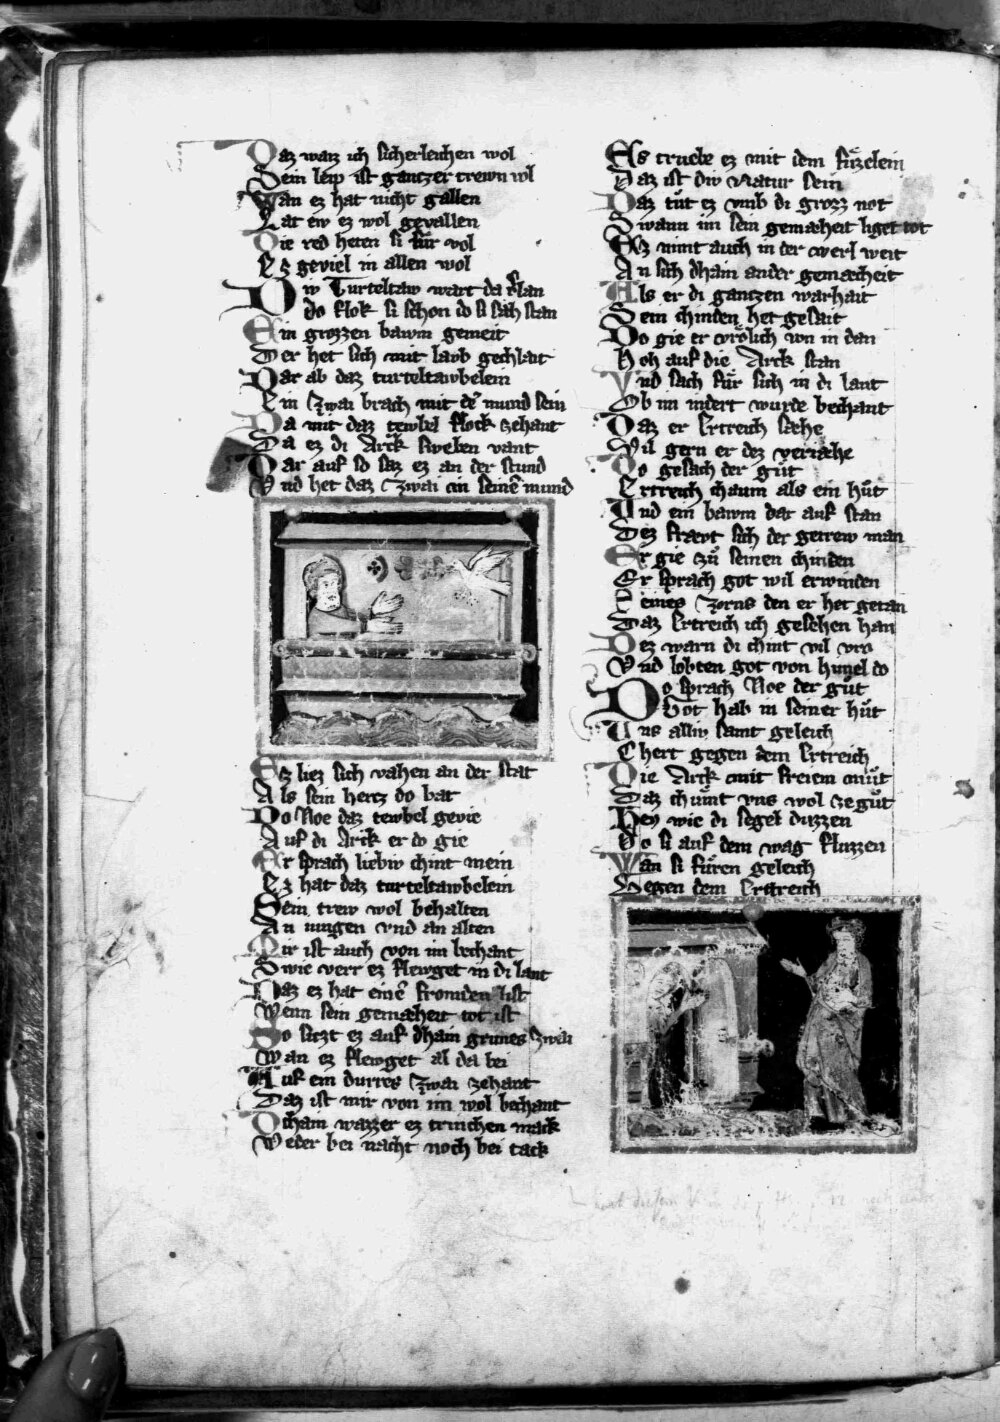 Daz waiz ich sicherleichen wol
Sein leip ist gantzer trewn vol
Wan ez hat nicht gallen
Lat ew ez wol gevallen
Die red heten si für vol
Ez geviel in allen wol
Diw Turteltaw wart da verlan
Do flok si schon do si sah stan
Ein grozzen bawm gemeit
Der het sich mit lawb gechlait
Dar ab daz turteltawbelein
Ein zwai brach mit dem mund sein
Da mit daz tewbel flock zehant
Da ez di Arck sweben vant
Dar auf so saz ez an der stund
Vnd het daz zwai in seinem mund
Ez liez sich vahen an der stat
Als sein hertz do bat
Do Noe daz tewbel gevie
Auf di Arck er do gie
Er sprach liebiv chint mein
Ez hat daz turteltawbelein
Sein trew wol behalten
An iungen vnd an alten
Mir ist auch von im bechant
Swie verr ez flewget in di lant
Daz ez hat einen fromden list
Wenn sein gemæheit tot ist
So sitzt ez auf dhain grunes zwai
Wan ez flewget al da bei
Auf ein durres zwai zehant
Daz ist mir von im wol bechant
Dchain wazzer ez trinchen mack
Weder bei nacht noch bei tack
Es truebe ez mit dem füzelein
Daz ist div natur sein
Daz tüt ez vmb di grozz not
Swann im sein gemæheit liget tot
Ez nimt auch in der werl weit
An sich dhain ander gemæcheit
Als er di gantzen warhait
Sein chinden het gesait
Do gie er vrölich vn in dan
Hoh auf die Arck stan
Vnd sach für sich in di lant
Ob im indert wurde bechant
Daz er Ertreich sæhe
Vil gern er dez veriæhe
Do gesach der güt
Ertreich chaum als ein hüt
Vnd ein bawm dar auf stan
Dez frævt sich der getrew man
Er gie zü seinen chinden
Er sprach got wil erwinden
Seines zorns den er het getan
Daz Ertreich ich gesehen han
Dez warn di chint vil vro
Vnd lobten got von himel do
Do sprach Noe der güt
Got hab in seiner hüt
Vns alliv samt geleich
Chert gegen dem Ertreich
Die Arck mit freiem müt
Daz chümt vns wol ze güt
Hey wie di segel duzzen
Do si auf dem wag fluzzen
Wan si füren geleich
Gegen dem Ertreich